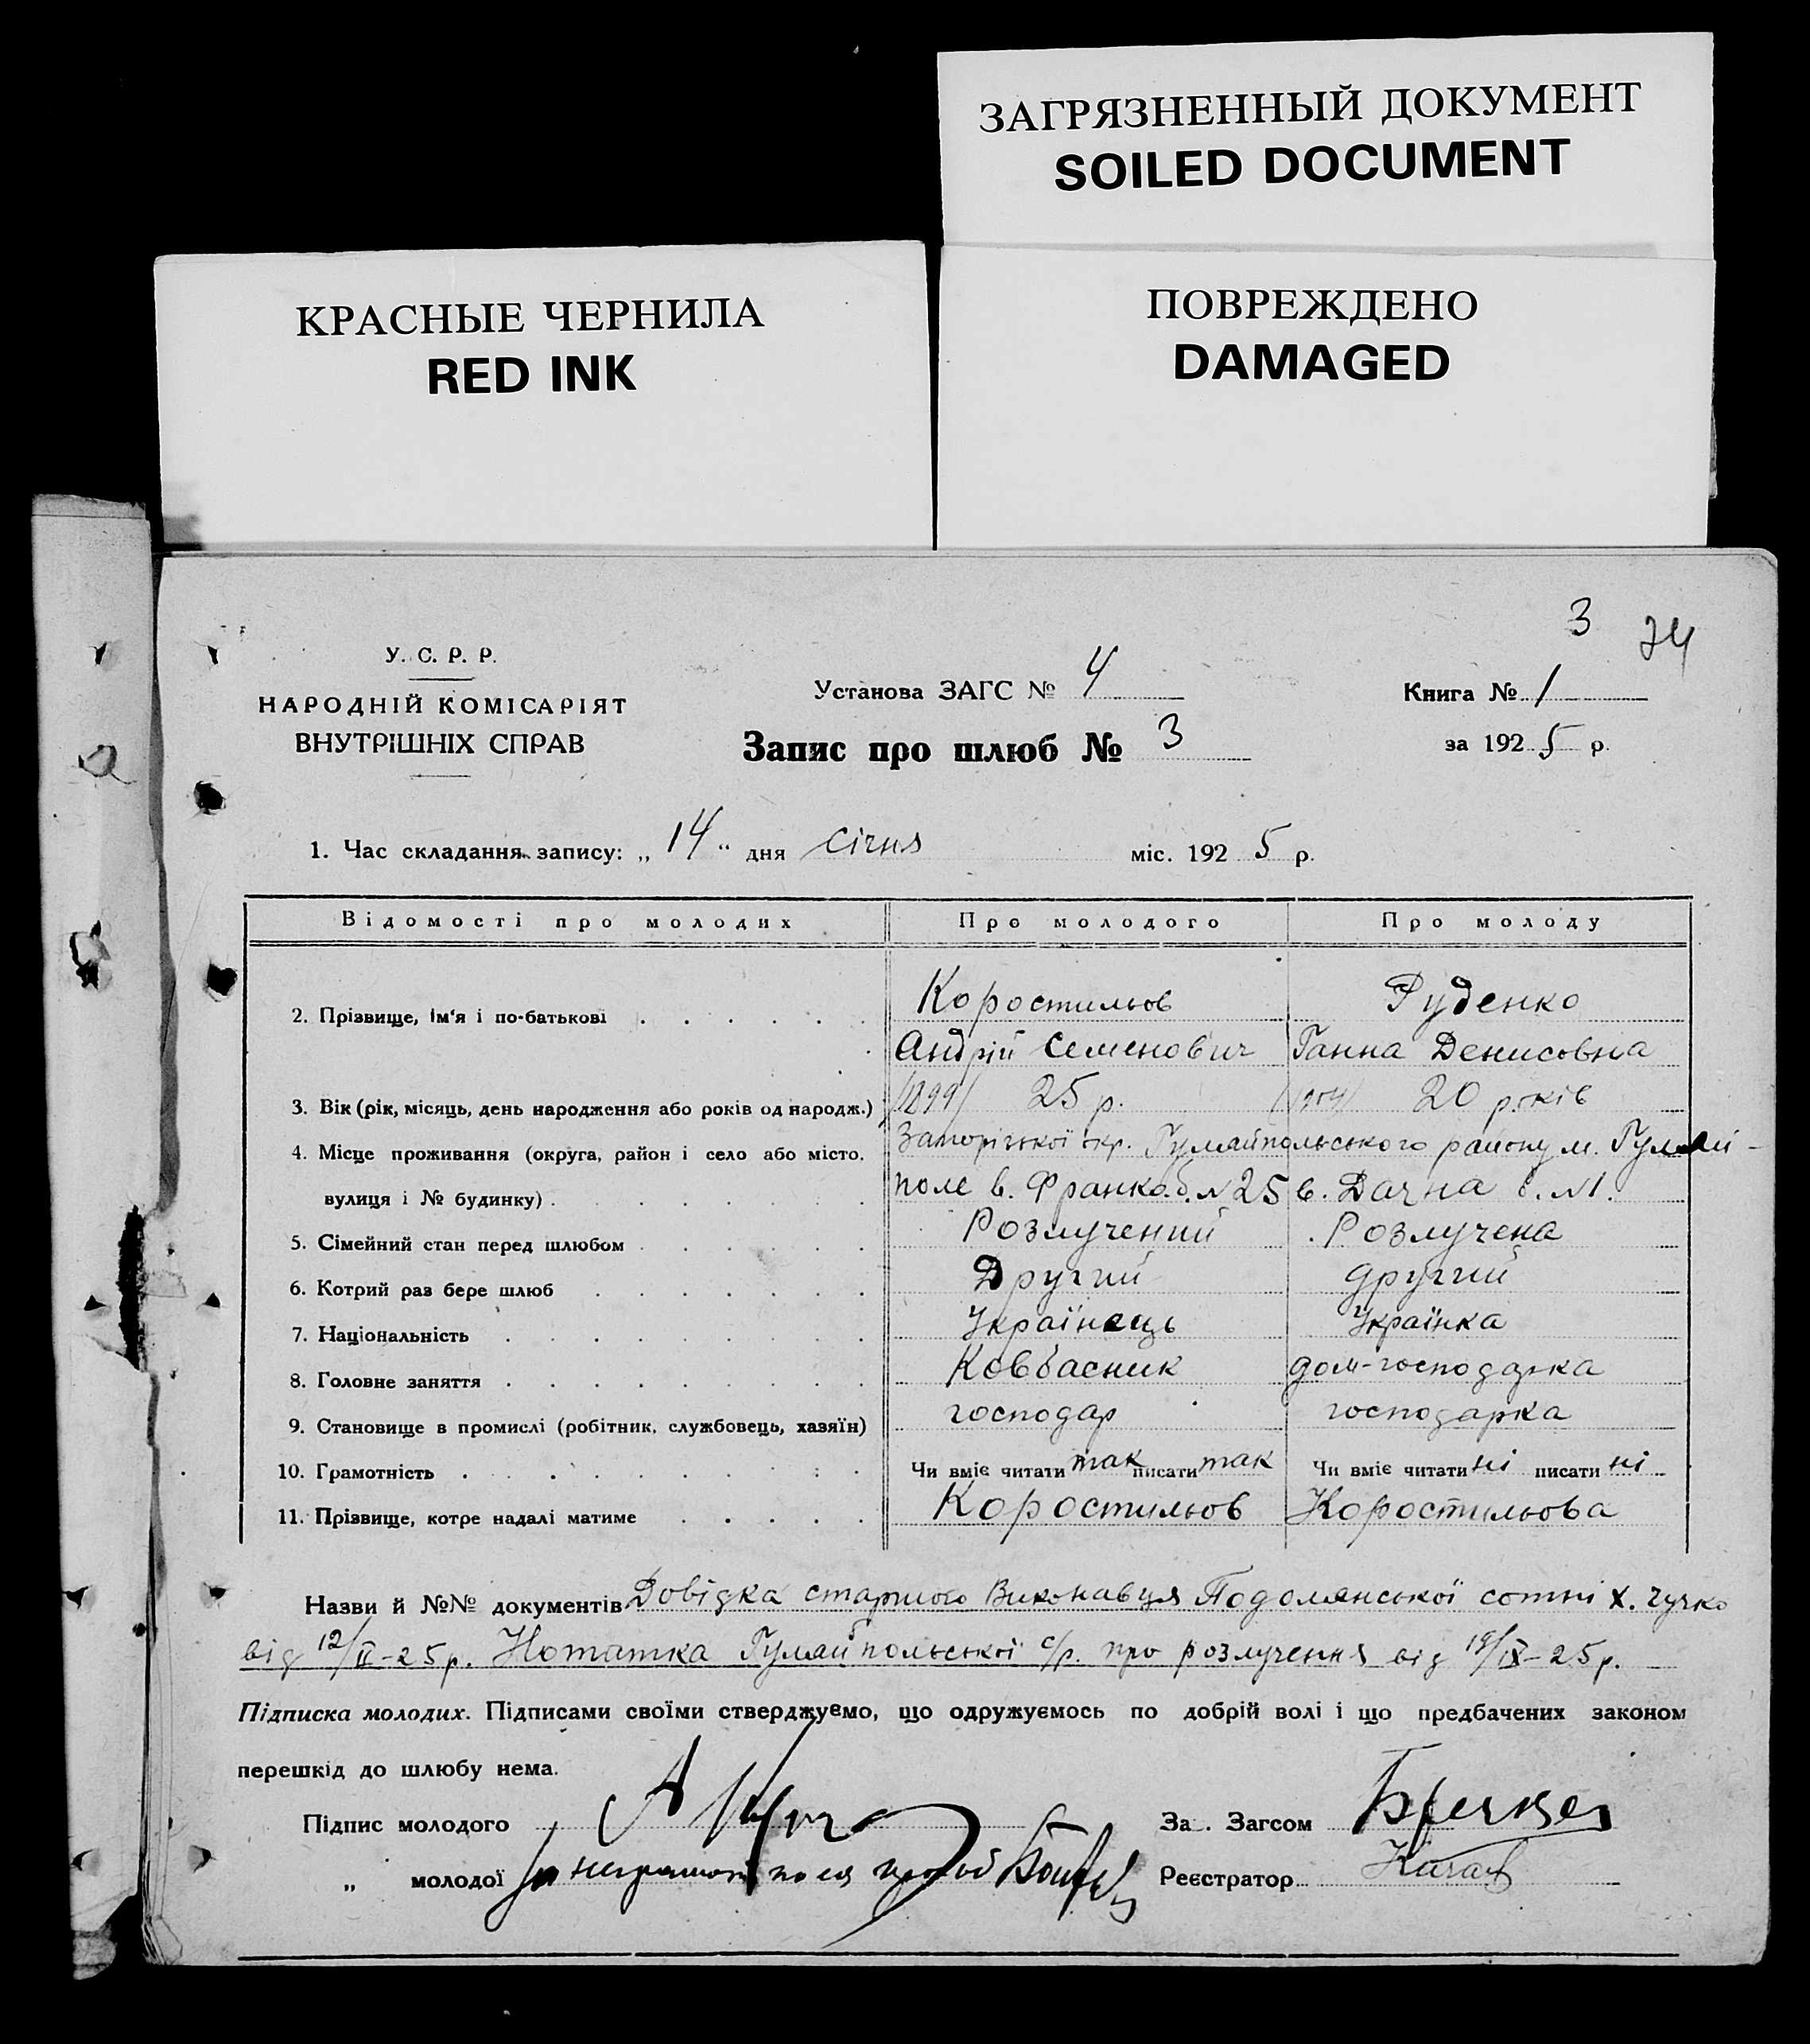 ЗАГРЯЗНЕННЫЙ ДОКУМЕНТ
SOILED DOCUMENT
КРАСНЫЕ ЧЕРНИЛА
RED INK
ПОВРЕЖДЕНО
DAMAGED
3 74
У. С. Р. Р.
НАРОДНІЙ КОМІСАРІЯТ
ВНУТРІШНІХ СПРАВ
Установа ЗАГС № 4
Запис про шлюб № 3
Книга № 1
за 1925 р.
1. Час складання запису: „ 14 “ дня січня міс. 1925 р.
Відомості про молодих Про молодого Про молоду
2. Прізвище, ім'я і по-батькові Коростильов Руденко
Андрій Семенович Ганна Денисовна
3. Вік (рік, місяць, день народження або років од народж.) /1899/ 25 р. /1904/ 20 років
4. Місце проживання (округа, район і село або місто, Запорізької окр. Гуляйпольського району м. Гуляй-
вулиця і № будинку) поле в. Франко б. № 25 в. Дачна б. № 1.
5. Сімейний стан перед шлюбом Розлучений Розлучена
6. Котрий раз бере шлюб Другий другий
7. Національність Українець Українка
8. Головне заняття Ковбасник дом-господарка
9. Становище в промислі (робітник, службовець, хазяїн) господар господарка
10. Грамотність Чи вміє читати так писати так Чи вміє читати ні писати ні
11. Прізвище, котре надалі матиме Коростильов Коростильова
Назви й №№ документів Довідка старшого Виконавця Подолянської сотні Х. Гучко
від 12/ІІ-25 р. Нотатка Гуляйпольської с/р. про розлучення від 19/ІХ-25 р.
Підписка молодих. Підписами своїми стверджуємо, що одружуємось по добрій волі і що предбачених законом
перешкід до шлюбу нема.
Підпис молодого
За. Загсом
„ молодої
Реєстратор